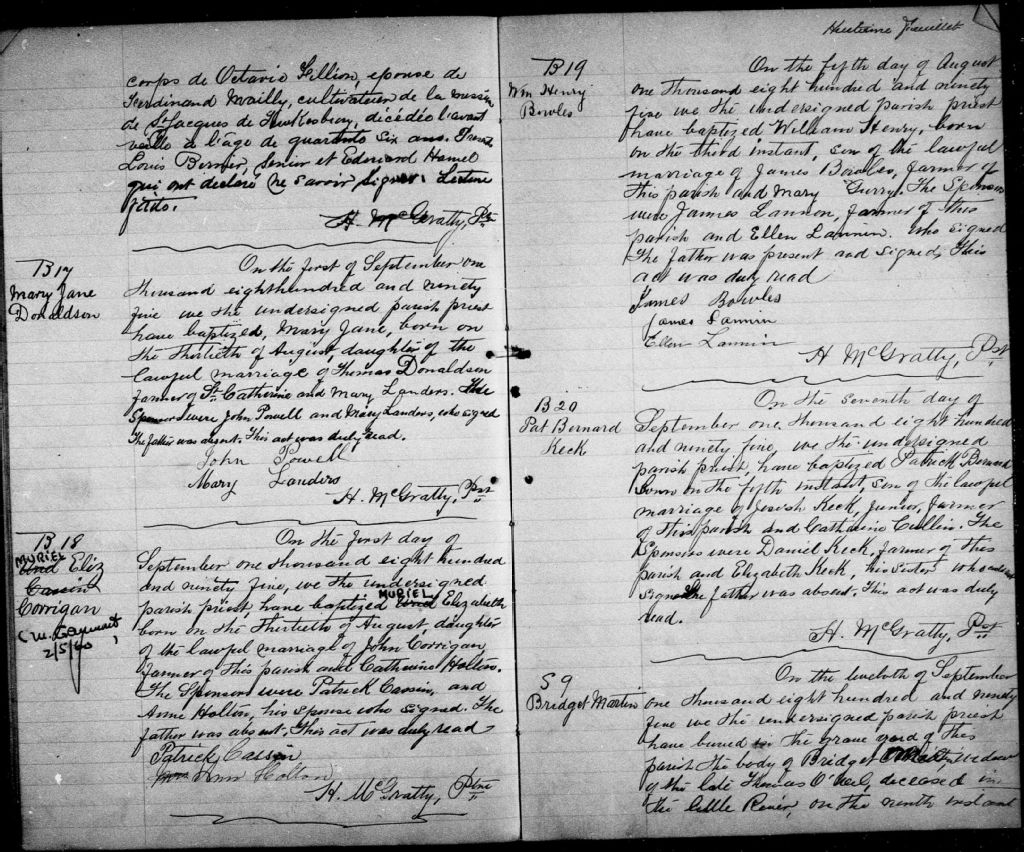 corps de Octavie Fillion, epouse de
Ferdinand Mailly, cultivateur de la mission
de St Jacques de Hawkesbury, décédée l'avant
veille à l'âge de quarante six ans. Presents
Louis Bernier, Senior et Edouard Hamel
qui ont declaré ne savoir signer. Lecture
faite.
H. McGratty, Pst
B 17
Mary Jane
Donaldson
On the first of September one
thousand eight hundred and ninety
five we the undersigned parish priest
have baptized, Mary Jane, born on
the thirtieth of August, daughter of the
lawful marriage of Thomas Donaldson
farmer of St. Catherine and Mary Landers. The
Sponsors were John Powell and Mary Landers, who signed
The father was absent. This act was duly read.
John Powell
Mary Landers
H. McGratty, Pst
B 18
MURIEL
Eliz
Cassin
Corrigan
2/5/60
On the first day of
September one thousand eight hundred
and ninety five, we the undersigned
MURIEL
parish priest, have baptized Elizabeth
born on the thirtieth of August, daughter
of the lawful marriage of John Corrigan,
farmer of this parish and Catherine Holton.
The Sponsors were Patrick Cassin, and
Anne Holton, his spouse who signed. The
father was absent. This act was duly read
Patrick Cassin
Ann Holton
H. McGratty, Ptre
Huitieme Feuillet
B 19
Wm Henry
Bowles
On the fifth day of August
one thousand eight hundred and ninety
five we the undersigned parish priest
have baptized William Henry, born
on the third instant, son of the lawful
marriage of James Bowles, farmer of
this parish and Mary Curry. The Sponsors
were James Lannon, farmer of this
parish and Ellen Lannin. who signed
The father was present and signed, This
act was duly read
James Bowles
James Lannin
Ellen Lannin
H. McGratty, Pst
B 20
Pat Bernard
Keck
On the seventh day of
September one thousand eight hundred
and ninety five, we the undersigned
parish priest, have baptized Patrick Bernard
born on the fifth instant, son of the lawful
marriage of Josish Keck, Junior, farmer
of this parish and Catherine Cullin. The
Sponsors were Daniel Keck, farmer of this
parish and Elizabeth Keck, his sister who
sign The father was absent. This act was duly
read.
H. McGratty, Pst
S 9
Bridget Martin
On the twelvth of September
one thousand eight hundred and ninety
five we the undersigned parish priest
have buried in the grave yard of this
parish the body of Bridget widow
of the late Thomas O'Neil, deceased in
the Little River, on the ninth instant